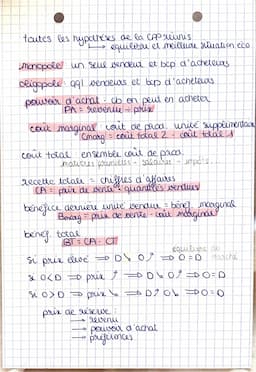 toutes les hypothèses de la CPP réunis
↳ équilibre et meilleure situation éco
monopole : un seul vendeur et bcp d'acheteurs
oligopole : qql vendeurs et bcp d'acheteurs
pouvoir d'achat : cb on peut en acheter
PA = revenu - prix
coût marginal : coût de prod. unité supplémentaire
Cmarg = coût total 2 - coût total 1
coût total : ensemble coût de prod.
matières premières - salaires - impôts
recette totale = chiffres d'affaires
CA = prix de vente × quantités vendues
bénéfice dernière unité vendue = bénéf. marginal
Bmarg = prix de vente - coût marginal
bénéf. total
BT = CA - CT
équilibre du marché
Si prix élevé ⇒ D↘ O↗ ⇒ O=D
si O<D ⇒ prix ↗ ⇒ D↘ O↗ ⇒ O=D
si O>D ⇒ prix ↘ ⇒ D↗ O↘ ⇒ O=D
prix de réserve :
→ revenu
→ pouvoir d'achat
→ préférences